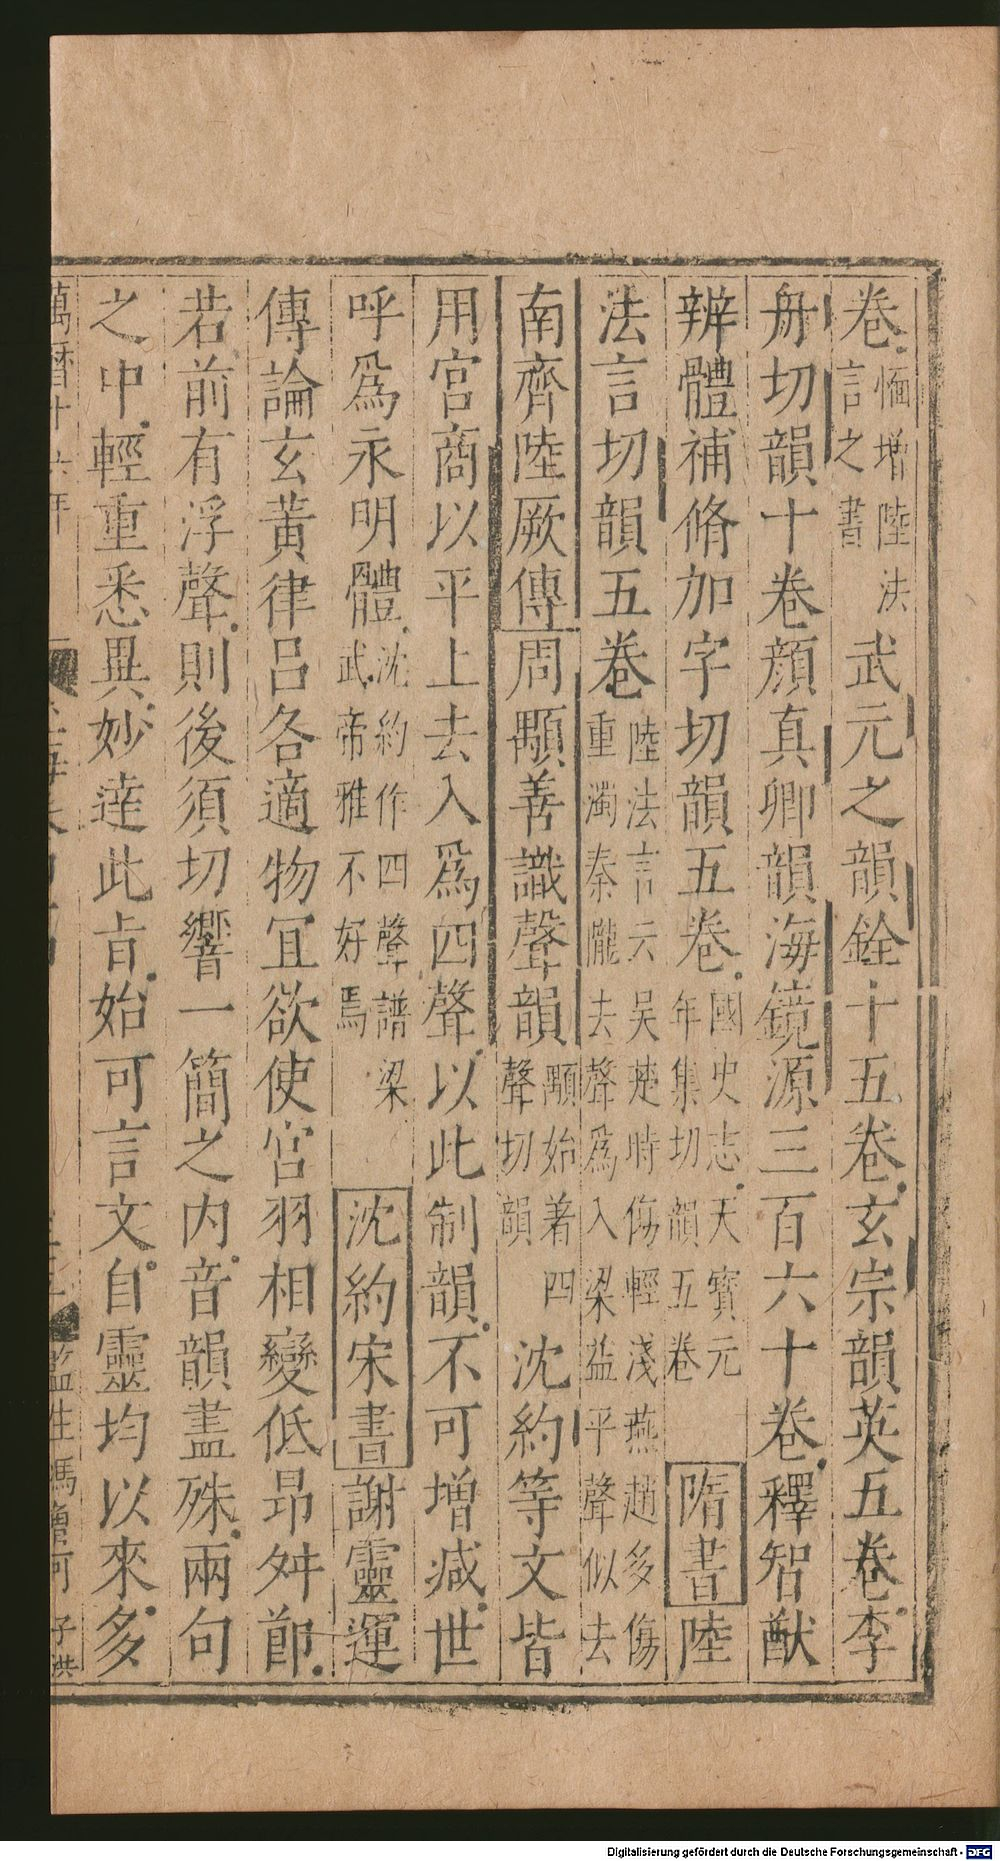 卷愐增陸法言之書武元之韻銓十五卷玄宗韻英五卷李
舟切韻十卷顏真卿韻海鏡源三百六十卷釋智猷
辨體補脩加字切韻五卷國史志天寶元年集切韻五卷隋書陸
法言切韻五卷陸法言云吴楚時傷輕淺燕趙多傷重濁秦隴去聲為入梁益平聲似去
南齊陸厥傳周顒善識聲韻顒始著四聲切韻沈約等文皆
用宮商以平上去入爲四聲以此制韻不可增减世
呼爲永明體沈約作四聲譜梁武帝雅不好焉沈約宋書謝靈運
傳論玄黃律吕各適物冝欲使宫羽相變低昂舛節
若前有浮聲則後須切響一簡之内音韻盡殊兩句
之中輕重悉異妙達此㫖始可言文自靈均以來多
萬曆十六年
監生馮
Digitalisierung gefördert durch die Deutsche Forschungsgemeinschaft - DFG